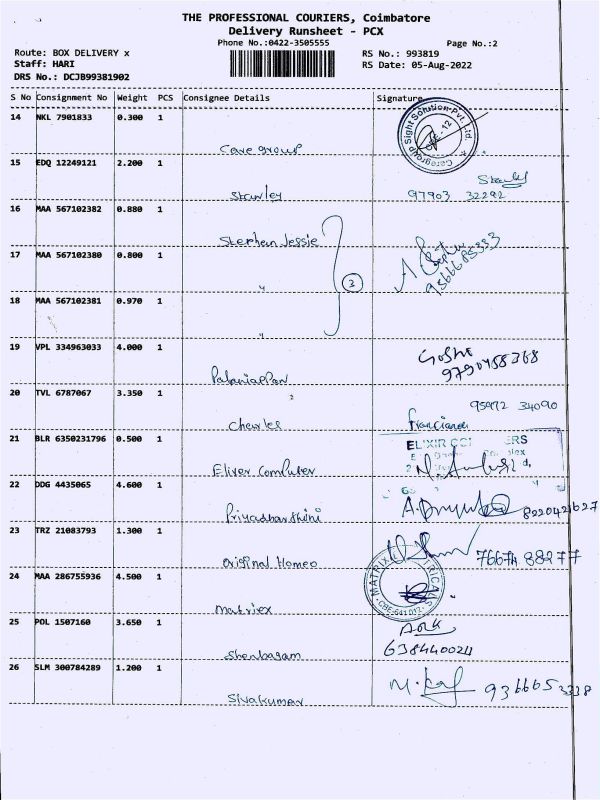 THE PROFESSIONAL COURIERS, Coimbatore
Delivery Runsheet - PCX
Phone No.:0422-3505555
Page No.:2
Route: BOX DELIVERY x
RS No.: 993819
Staff: HARI
RS Date: 05-Aug-2022
DRS No.: DCJB99381902
S No Consignment No Weight PCS Consignee Details Signature
14 NKL 7901833 0.300 1
Care group
Caregroup Sight Solution Pvt. Ltd.
CBE - 12
15 EDQ 12249121 2.200 1
Stanley
97903 32292
16 MAA 567102382 0.880 1
Stephen Jessie
9566685333
17 MAA 567102380 0.800 1
"
3
18 MAA 567102381 0.970 1
"
19 VPL 334963033 4.000 1
Palaniappan
9790458368
20 TVL 6787067 3.350 1
Charles
95972 34090
21 BLR 6350231796 0.500 1
Eliver Computer
ELIXIR
22 DDG 4435065 4.600 1
Priyadharshini
8220421627
23 TRZ 21083793 1.300 1
Original Homeo
76674 88277
24 MAA 286755936 4.500 1
Matriex
MATRIX
CBE-641 012
25 POL 1507160 3.650 1
Shenbagam
6384400211
26 SLM 300784289 1.200 1
Sivakumar
9366653338